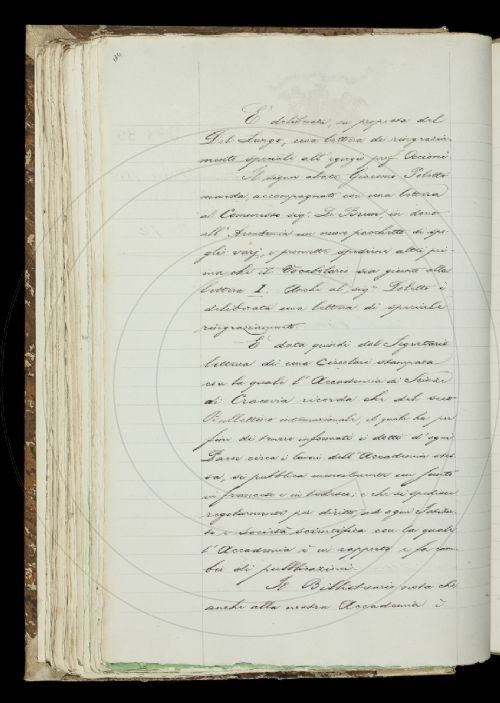 È deliberata, su proposta del
Del Lungo, una lettera di ringrazia-
mento speciale all'egregio prof. Occioni
Il signor abate Giacomo Poletto
manda, accompagnati con una lettera
al Commesso sig. Le Brun, in dono
all'Accademia un nuovo pacchetto di spo-
gli varj, e promette spedirne altri pri-
ma che il Vocabolario sia giunto alla
lettera I. Anche al sig. Poletto è
deliberata una lettera di speciale
ringraziamento.
È data quindi dal Segretario
lettura di una Circolare stampata
con la quale l'Accademia di Scienze
di Cracovia ricorda che del suo
Bullettino internazionale, il quale ha per
fine di tenere informati i dotti d'ogni
Paese circa i lavori dell'Accademia stes-
sa, si pubblica mensilmente un
in francese e in tedesco; e che si spedisce
regolarmente per diritto ad ogni Istitu-
to e società scientifica con la quale
l'Accademia è in rapporto e fa cam-
bio di pubblicazioni.
Il Bibliotecario nota che
anche alla nostra Accademia è